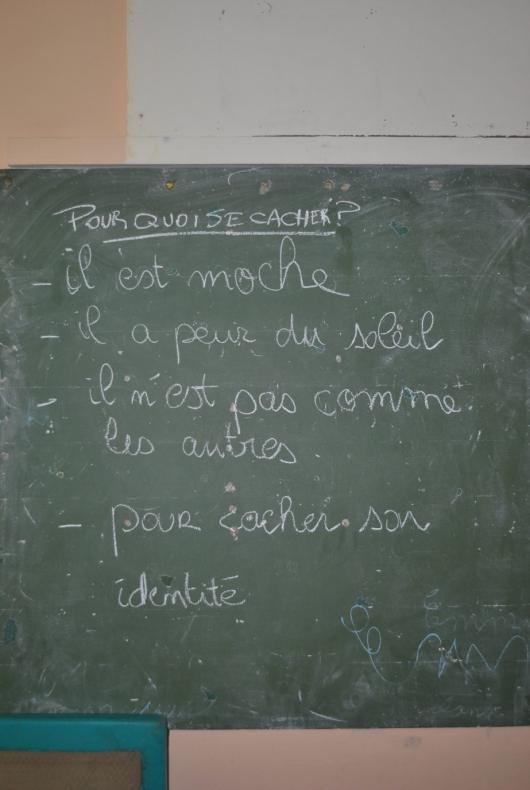 POURQUOI SE CACHER?
- il est moche
- il a peur du soleil
- il n'est pas comme
les autres.
- pour cacher son
identité